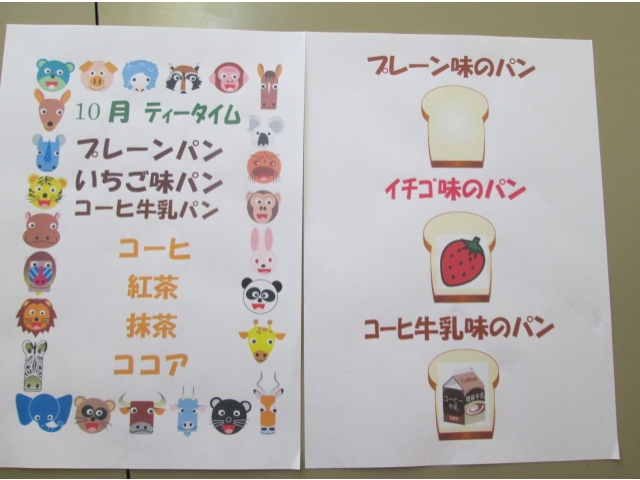 10月 ティータイム
プレーンパン
いちご味パン
コーヒ牛乳パン
コーヒ
紅茶
抹茶
ココア
プレーン味のパン
イチゴ味のパン
コーヒ牛乳味のパン
コーヒー
牛乳